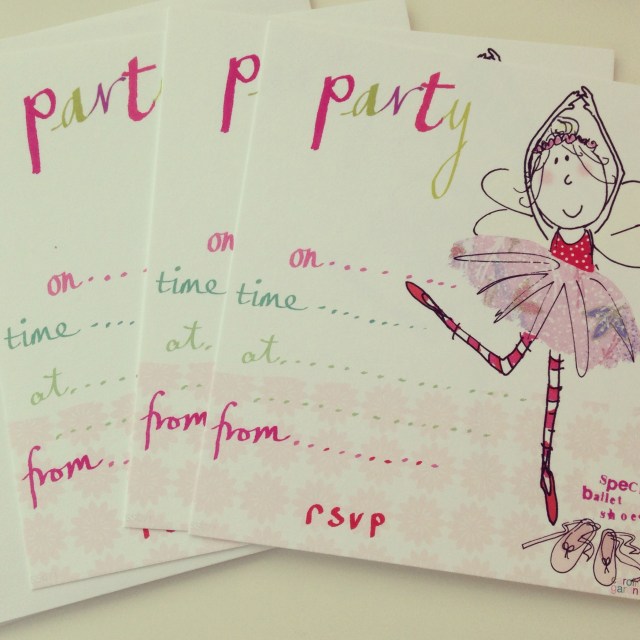 party
on.....
time......
at......
from..
party
on
time
at..
from
party
on.......
time..........
at..............
from...........
rsvp
special
ballet
shoes